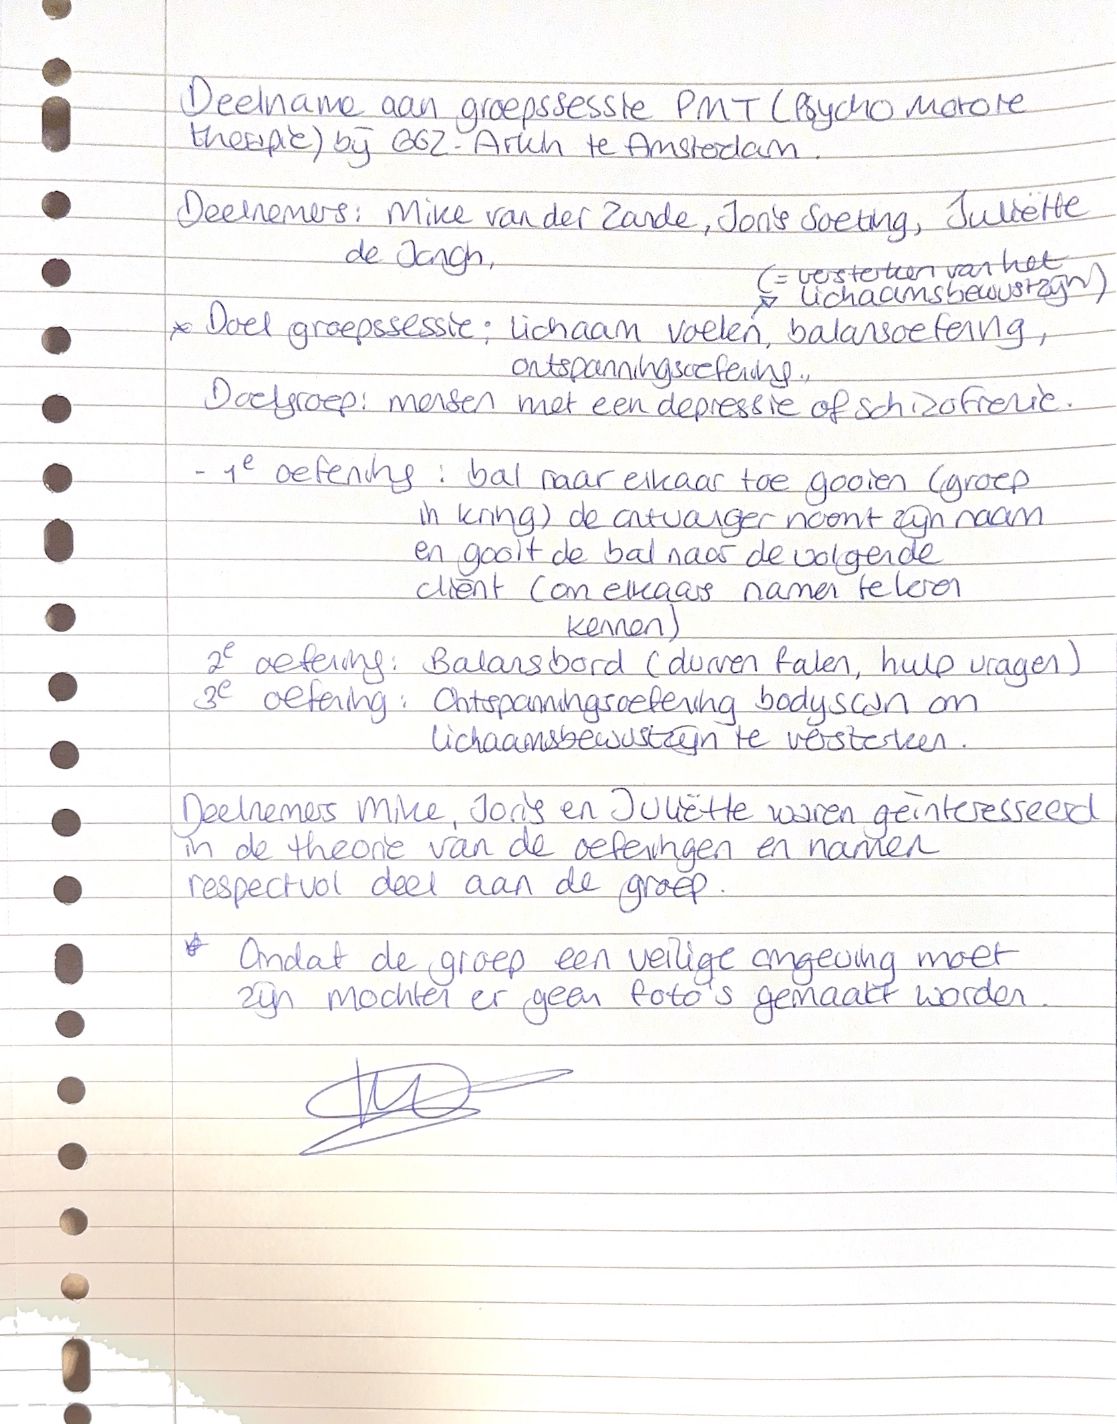 Deelname aan groepssessie PMT (Psycho Motore
therapie) bij GGZ-Arkin te Amsterdam.
Deelnemers: Mike van der Zande, Joris Soeting, Juliëtte
de Jongh,
(= versterken van het
lichaamsbewustzijn)
* Doel groepssessie: lichaam voelen, balansoefening,
ontspanningsoefening.,
Doelgroep: mensen met een depressie of schizofrenie.
- 1e oefening: bal naar elkaar toe gooien (groep
in kring) de ontvanger noemt zijn naam
en gooit de bal naar de volgende
cliënt (om elkaars namen te leren
kennen)
2e oefening: Balansbord (durven falen, hulp vragen)
3e oefening: Ontspanningsoefening bodyscan om
lichaamsbewustzijn te versterken.
Deelnemers Mike, Joris en Juliëtte waren geïnteresseerd
in de theorie van de oefeningen en namen
respectvol deel aan de groep.
* Omdat de groep een veilige omgeving moet
zijn mochten er geen foto's gemaakt worden.